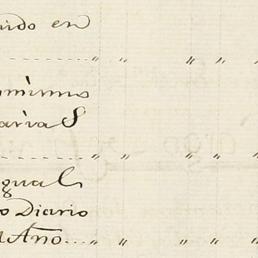 ido en
" " " "
nimmo
aria S
" " " "
gual
o Diario
l Año... " " " "